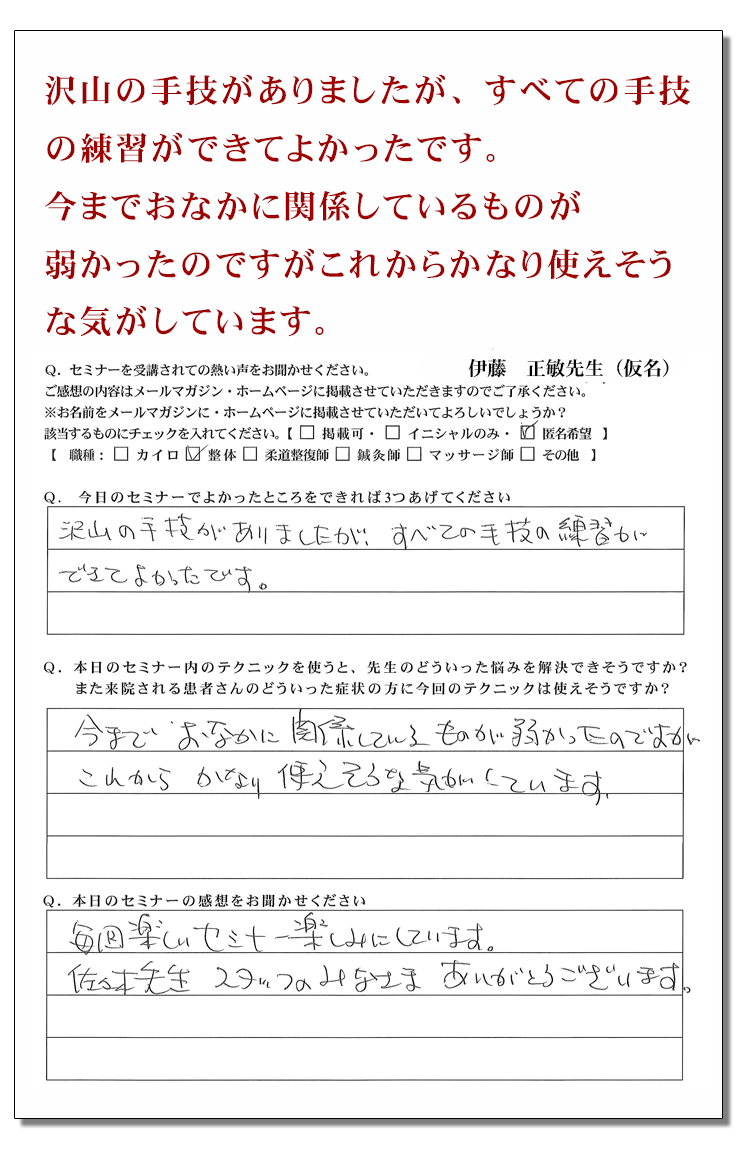 沢山の手技がありましたが、すべての手技
の練習ができてよかったです。
今までおなかに関係しているものが
弱かったのですがこれからかなり使えそう
な気がしています。
Q．セミナーを受講されての熱い声をお聞かせください。 伊藤　正敏先生（仮名）
ご感想の内容はメールマガジン・ホームページに掲載させていただきますのでご了承ください。
※お名前をメールマガジンに・ホームページに掲載させていただいてよろしいでしょうか？
該当するものにチェックを入れてください。【 □ 掲載可・ □ イニシャルのみ・ ☑ 匿名希望 】
【 職種： □ カイロ ☑ 整体 □ 柔道整復師 □ 鍼灸師 □ マッサージ師 □ その他 】
Q． 今日のセミナーでよかったところをできれば3つあげてください
沢山の手技がありましたが、すべての手技の練習が
できてよかったです。
Q．本日のセミナー内のテクニックを使うと、先生のどういった悩みを解決できそうですか？
また来院される患者さんのどういった症状の方に今回のテクニックは使えそうですか？
今まで おなかに 関係している ものが 弱かったのですが
これから かなり 使えそうな気がしています。
Q．本日のセミナーの感想をお聞かせください
毎回楽しいセミナー楽しみにしています。
佐々木先生 スタッフのみなさま ありがとうございます。